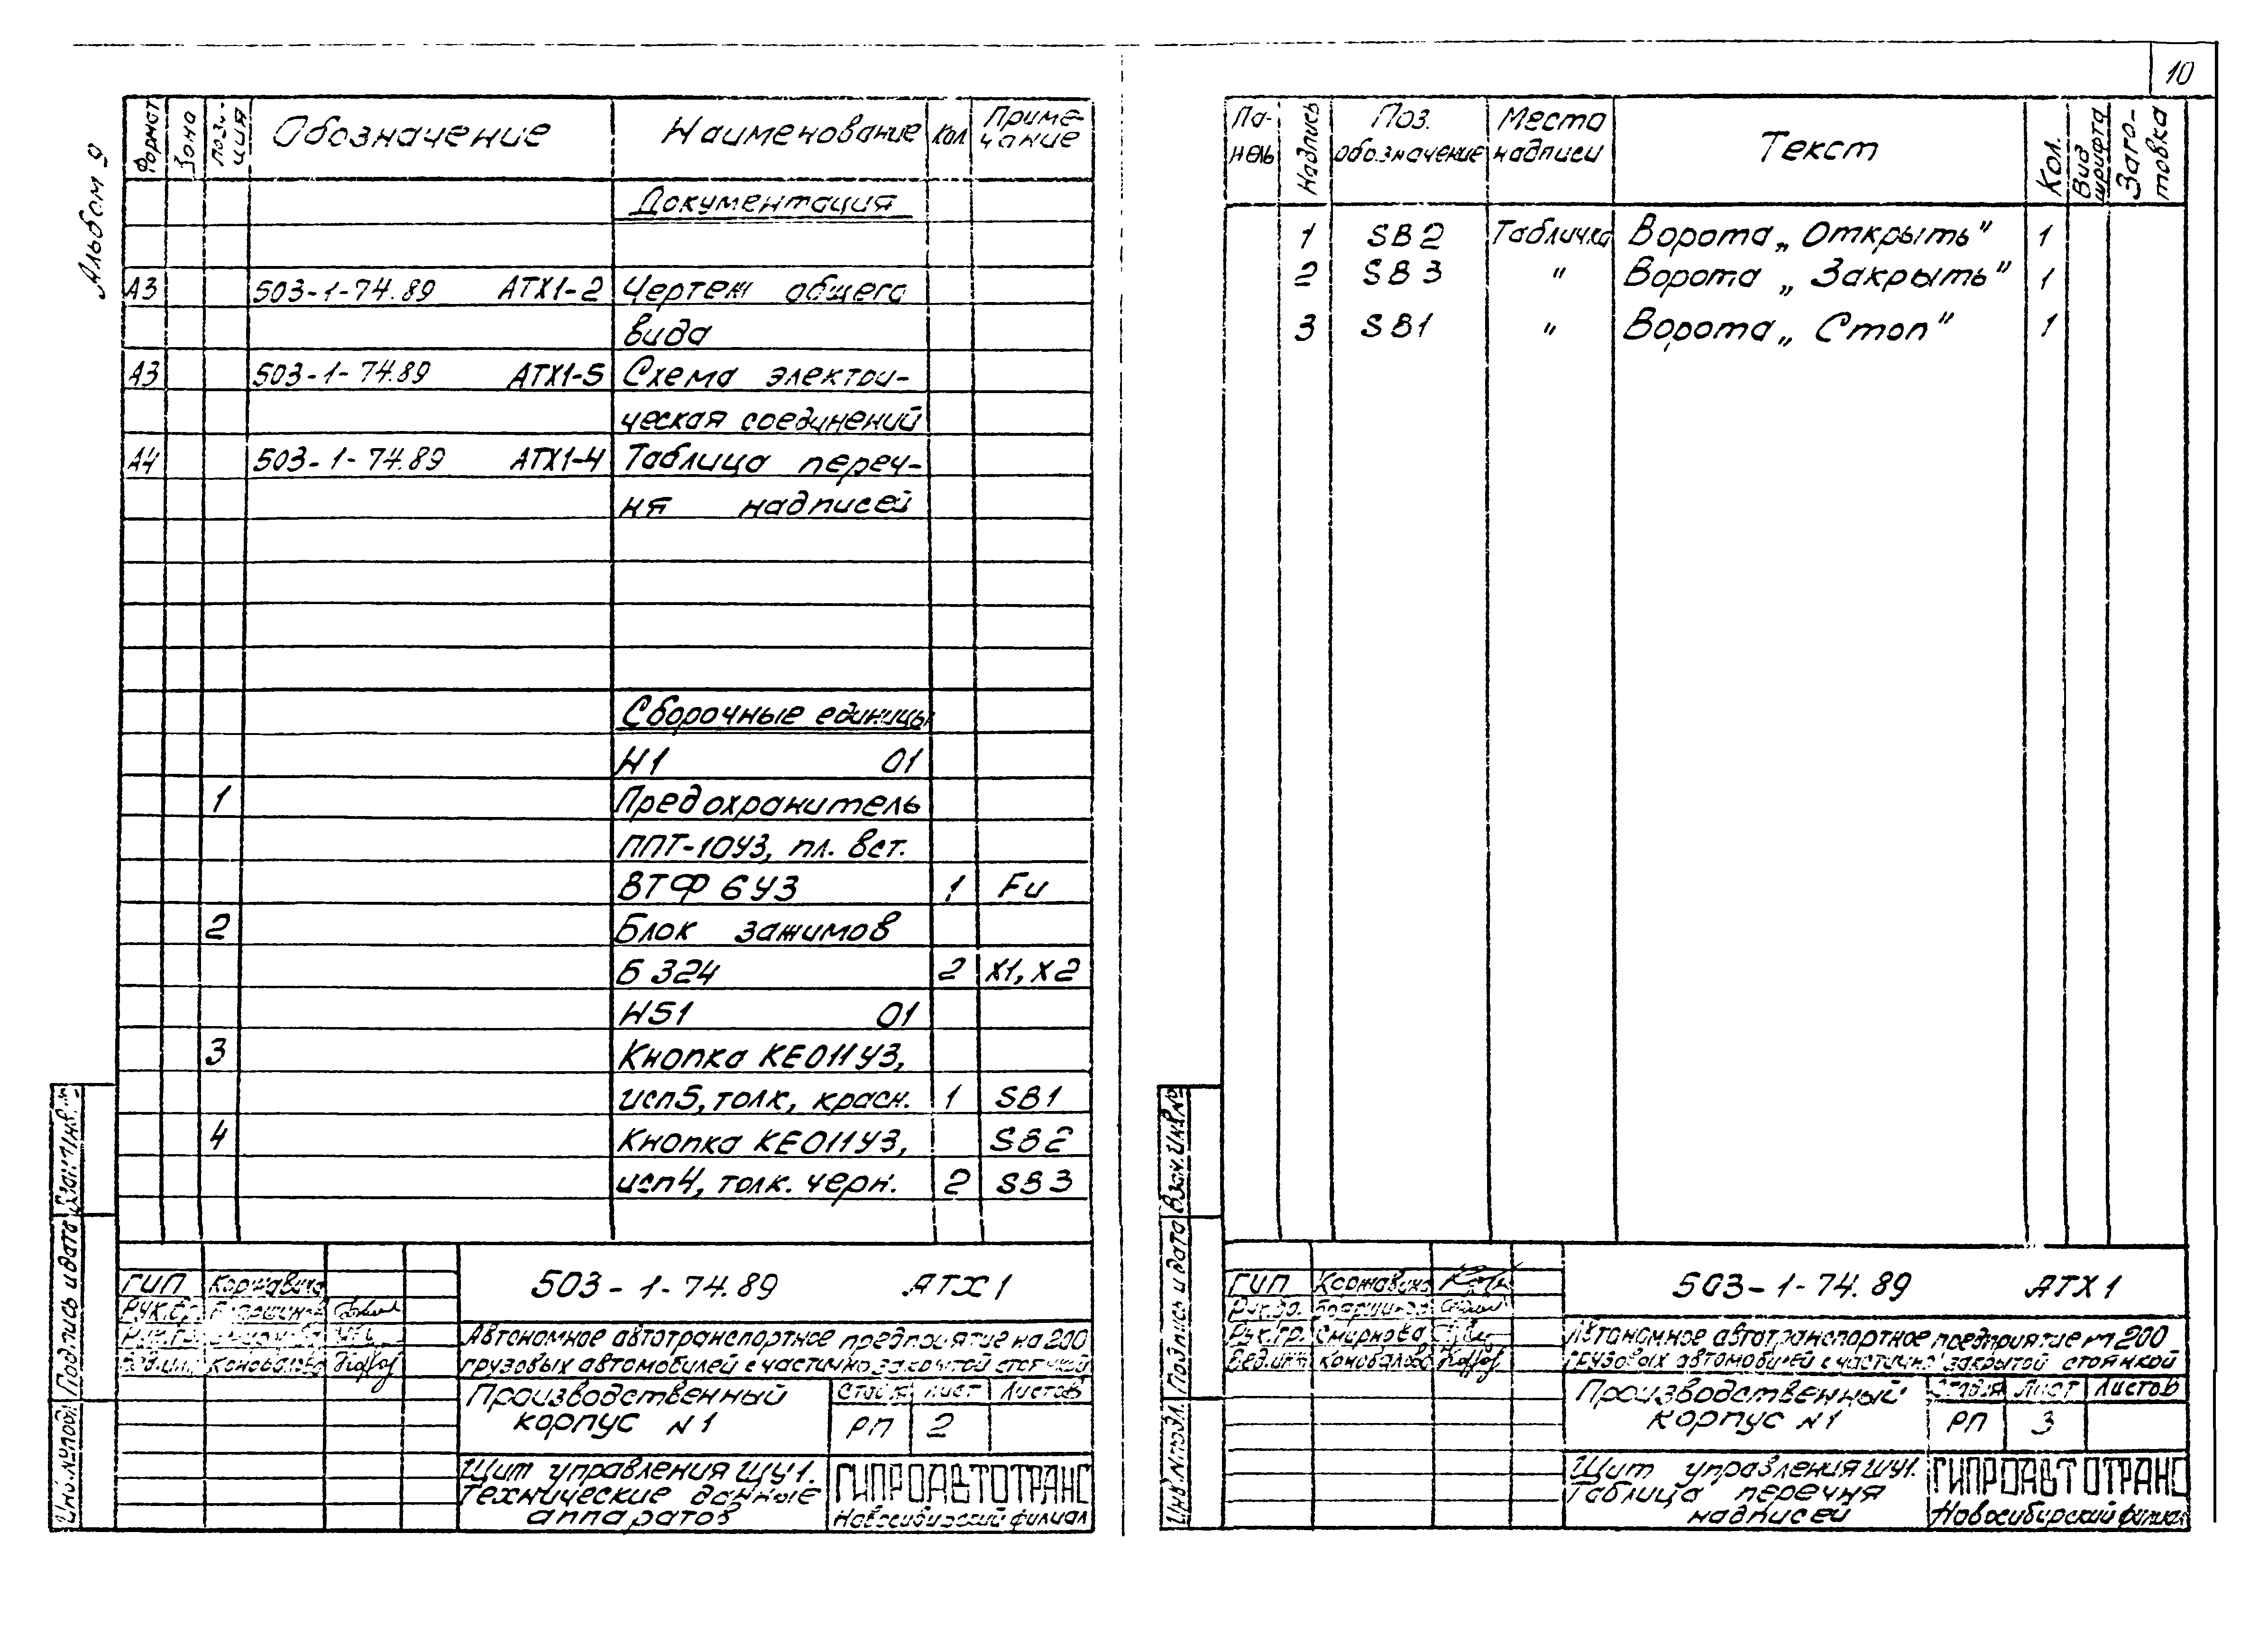 10
Альбом 9
Формат Зона Пози-ция Обозначение Наименование Кол. Приме-чание
Документация
А3 503-1-74.89 АТХ1-2 Чертеж общего
вида
А3 503-1-74.89 АТХ1-5 Схема электри-
ческая соединений
А4 503-1-74.89 АТХ1-4 Таблица переч-
ня надписей
Сборочные единицы
Н1 01
1 Предохранитель
ППТ-10У3, пл. вст.
ВТФ 6У3 1 Fu
2 Блок зажимов
Б 324 2 Х1, Х2
HS1 01
3 Кнопка КЕ011У3,
исп5, толк, красн. 1 SB1
4 Кнопка КЕ011У3, SB2
исп4, толк. черн. 2 SB3
Инв. № подл. Подпись и дата Взам. инв. №
503-1-74.89 АТХ1
ГИП Коржавина
Рук.гр.
Рук.гр.
Вед.инж Коновалова
Автономное автотранспортное предприятие на 200
грузовых автомобилей с частично закрытой стоянкой
Производственный
корпус №1
Стадия Лист Листов
РП 2
Щит управления ЩУ1.
Технические данные
аппаратов
ГИПРОАВТОТРАНС
Новосибирский филиал
Па-нель Надпись Поз. обозначение Места надписи Текст Кол. Вид шрифта Заго-товка
1 SB2 Табличка Ворота „Открыть" 1
2 SB3 " Ворота „Закрыть" 1
3 SB1 " Ворота „Стоп" 1
Инв. № подл. Подпись и дата Взам. инв. №
503-1-74.89 АТХ1
ГИП Коржавина
Рук.гр.
Рук.гр. Смирнова
Вед.инж Коновалова
Автономное автотранспортное предприятие на 200
грузовых автомобилей с частично закрытой стоянкой
Производственный
корпус №1
Стадия Лист Листов
РП 3
Щит управления ЩУ1.
Таблица перечня
надписей
ГИПРОАВТОТРАНС
Новосибирский филиал